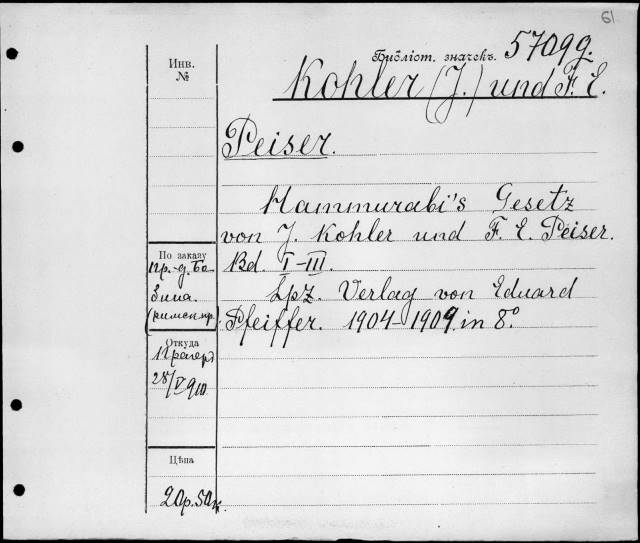 61
Библіот. значекъ. 57099.
Kohler (J.) und F. E.
Peiser.
Hammurabi's Gesetz
von J. Kohler und F. E. Peiser.
Bd. I-III.
Lpz. Verlag von Eduard
Pfeiffer. 1904-1909. in 8º
Инв.
№
По заказу
пр.-д. Ба
Зина.
(римск. пр.)
Откуда
28/V 910
Цѣна
20р. 50к.